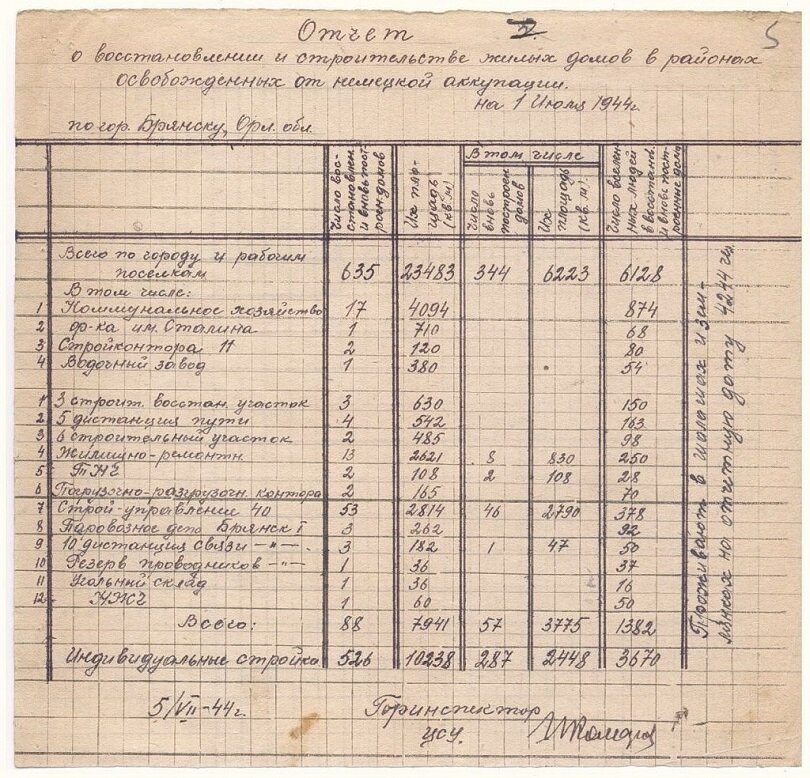 5
Отчет
о восстановлении и строительстве жилых домов в районах
освобожденных от немецкой аккупации.
на 1 Июля 1944г.
по гор. Брянску, Орл. обл.
Число вос-
становлен.
и вновь пост-
роен. домов
Их пло-
щадь
(кв.м)
В том числе
Число
вновь
построен.
домов
Их
площадь
(кв.м)
Число вселен-
ных людей
в восстанв.
и вновь пост-
роенные дома
Всего по городу и рабочим
поселкам 635 23483 344 6223 6128
В том числе:
1 Коммунальное хозяйство 17 4094 874
2 ф-ка им. Сталина 1 710 68
3 Стройконтора 11 2 120 80
4 Водочный завод 1 380 54
1 3 строит. восстан. участок 3 630 150
2 5 дистанция пути 4 542 163
3 6 строительный участок 2 485 98
4 Жилищно-ремонтн. 13 2621 8 830 250
5 ТНЧ 2 108 2 108 28
6 Погрузочно-разгрузочн. контора 2 165 70
7 Строй-управлении 40 53 2814 46 2790 378
8 Паровозное депо Брянск I 3 262 92
9 10 дистанция связи -"- 3 182 1 47 50
10 Резерв проводников -"- 1 36 37
11 Угольный склад 1 36 16
12 НЖЧ 1 60 50
Всего: 88 7941 57 3775 1382
Индивидуальные стройка 526 10238 287 2448 3670
Проживают в шалашах и зем-
лянках на отчетную дату 4244 чл.
5/VII-44г. Горинспектор
ЦСУ.